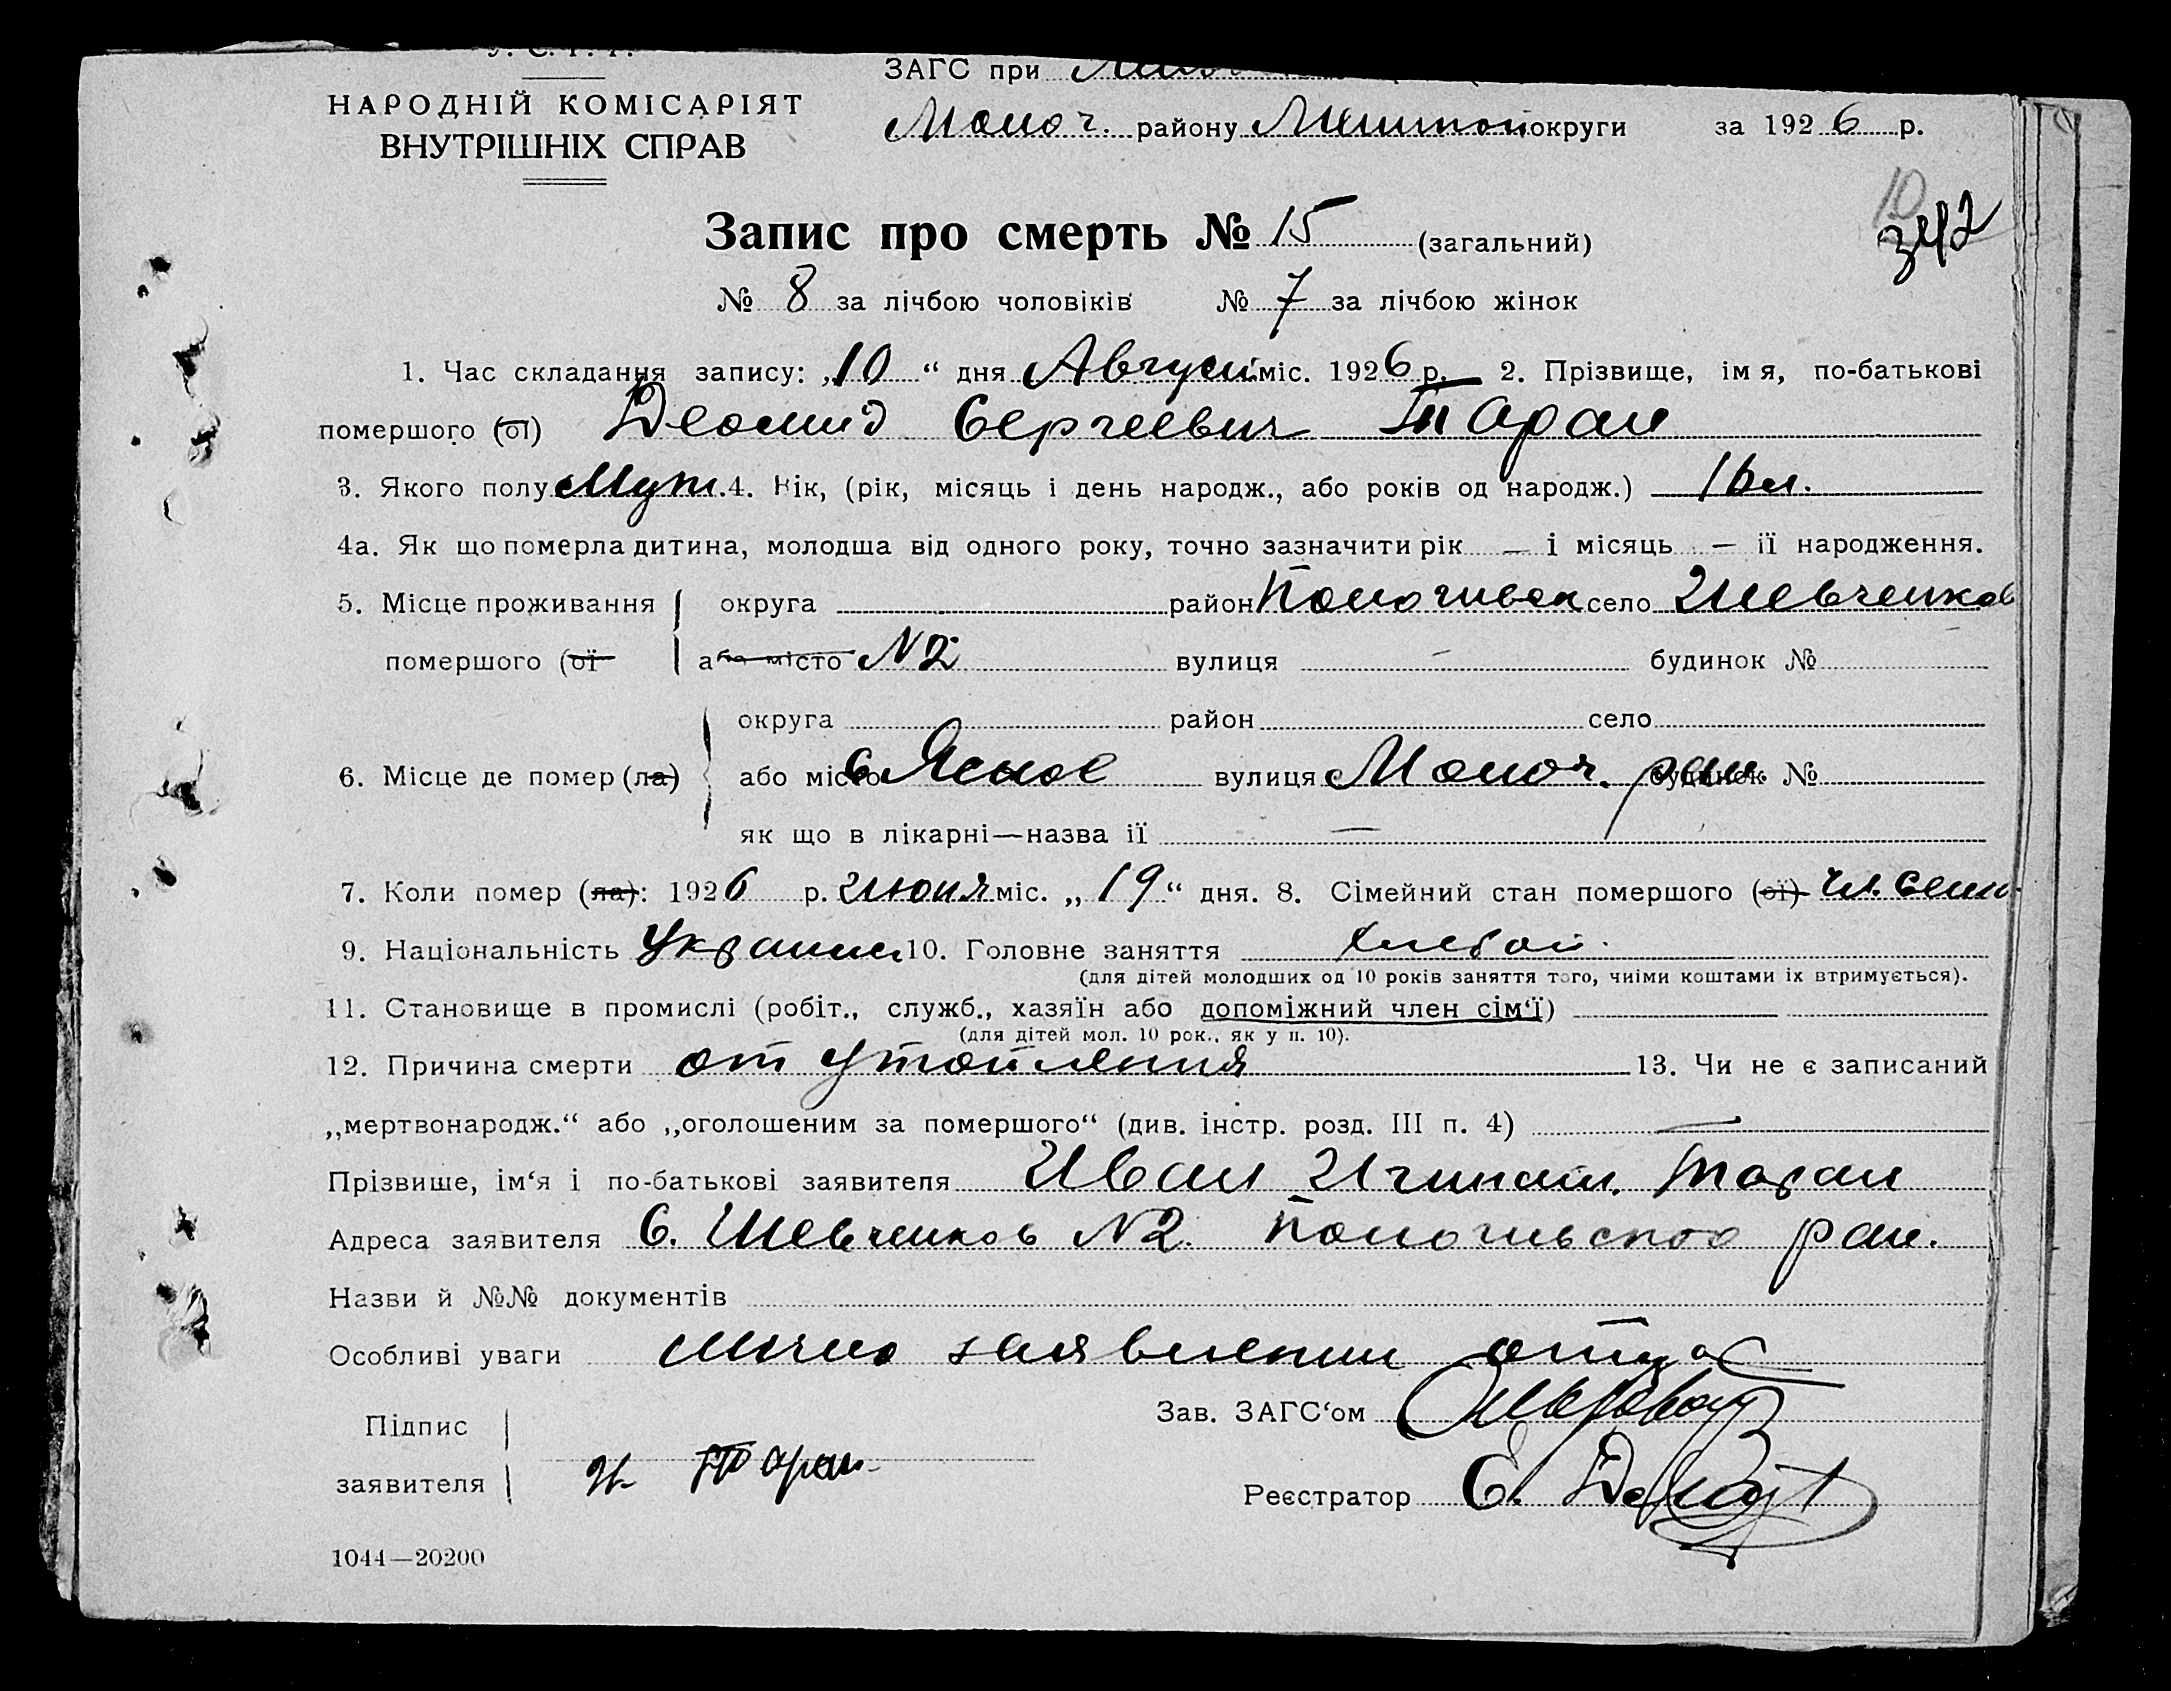 У. С. Р. Р.
ЗАГС при
НАРОДНІЙ КОМІСАРІЯТ
ВНУТРІШНІХ СПРАВ
Молоч. району Мелитоп округи за 1926 р.
10
342
Запис про смерть № 15 (загальний)
№ 8 за лічбою чоловіків № 7 за лічбою жінок
1. Час складання запису: „10“ дня Август міс. 1926 р. 2. Прізвище, імя, по-батькові
помершого (ої) Деомид Сергеевич Таран
3. Якого полу Муж. 4. Вік, (рік, місяць і день народж., або років од народж.) 16 л.
4а. Як що померла дитина, молодша від одного року, точно зазначити рік — і місяць — її народження.
5. Місце проживання округа район Пологивск село Шевченков
помершого (ої або місто N2 вулиця — будинок №
округа район село
6. Місце де помер (ла) або місто с Ясное вулиця Молоч. рай. будинок №
як що в лікарні—назва її —
7. Коли помер (ла): 1926 р. Июня міс. „19“ дня. 8. Сімейний стан помершого (ої) чл. семи
9. Національність Украинец 10. Головне заняття хлебоп.
(для дітей молодших од 10 років заняття того, чиїми коштами їх втримується).
11. Становище в промислі (робіт., служб., хазяїн або допоміжний член сім‘ї)
(для дітей мол. 10 рок., як у п. 10).
12. Причина смерти от утопления 13. Чи не є записаний
„мертвонародж.“ або „оголошеним за помершого“ (див. інстр. розд. III п. 4) —
Прізвище, ім‘я і по-батькові заявителя Иван Игнат. Таран
Адреса заявителя с. Шевченков N2 Пологивского рай.
Назви й №№ документів
Особливі уваги лично заявлении отца
Зав. ЗАГС‘ом
Підпис
заявителя И Таран
Реєстратор Е.
1044—20200